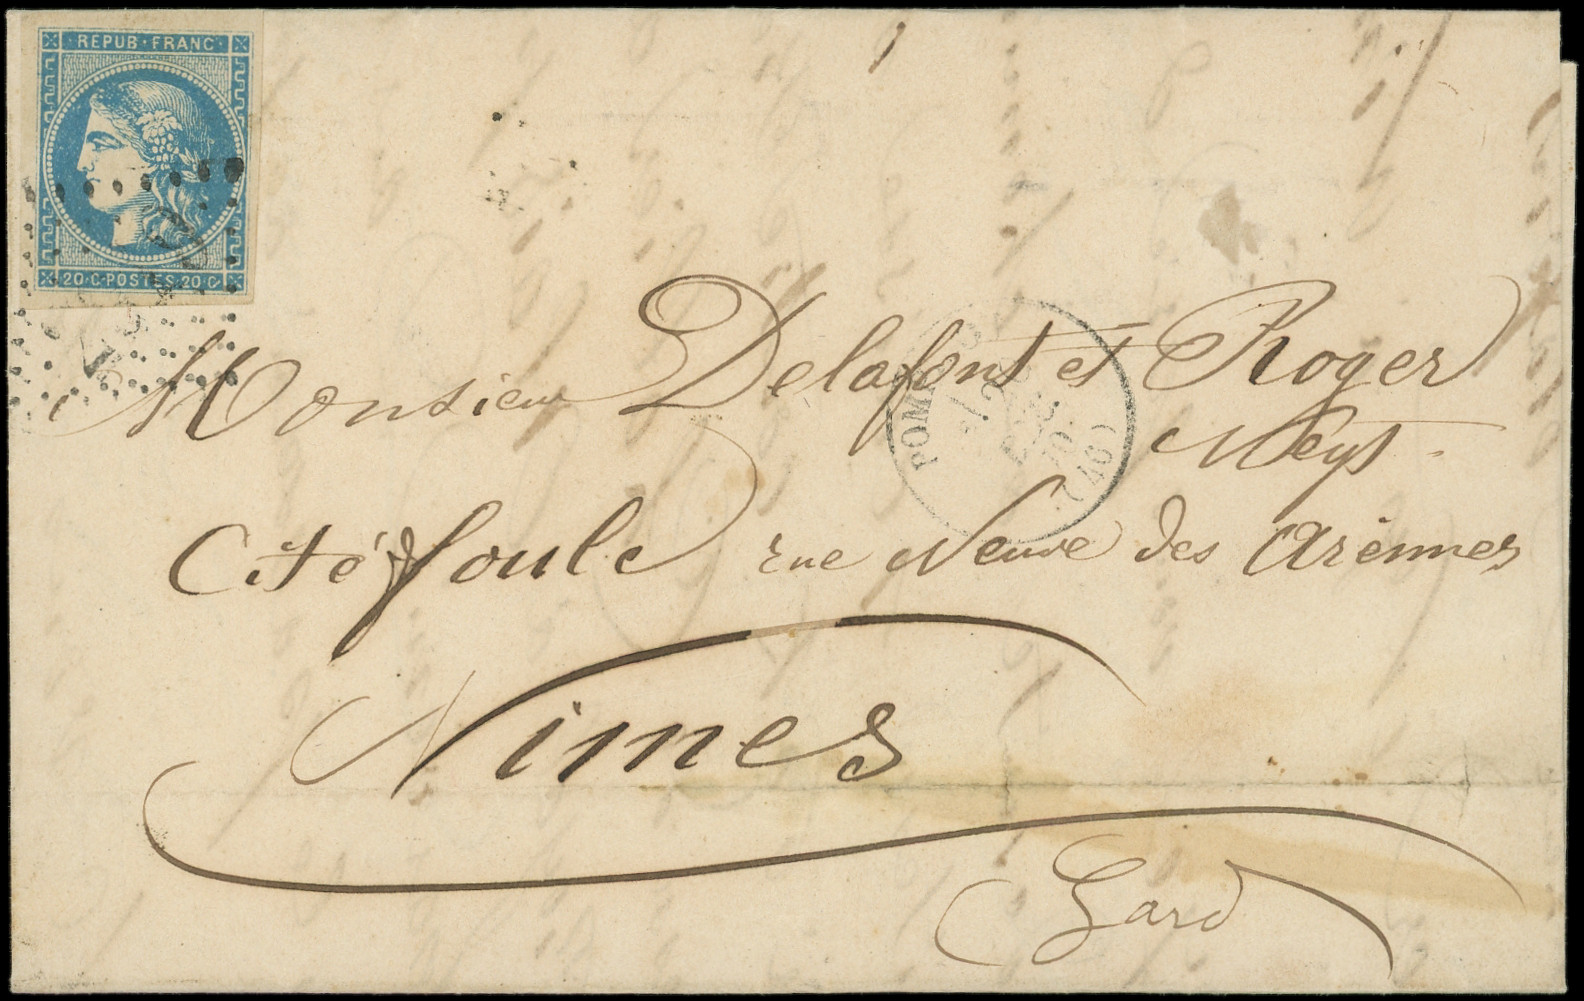 REPUB·FRANC
20·C·POSTES·20·C
Monsieur Delafont et Roger
Négt
Cité foule rue Neuve des Arènnes
Nimes
Gard
(46)